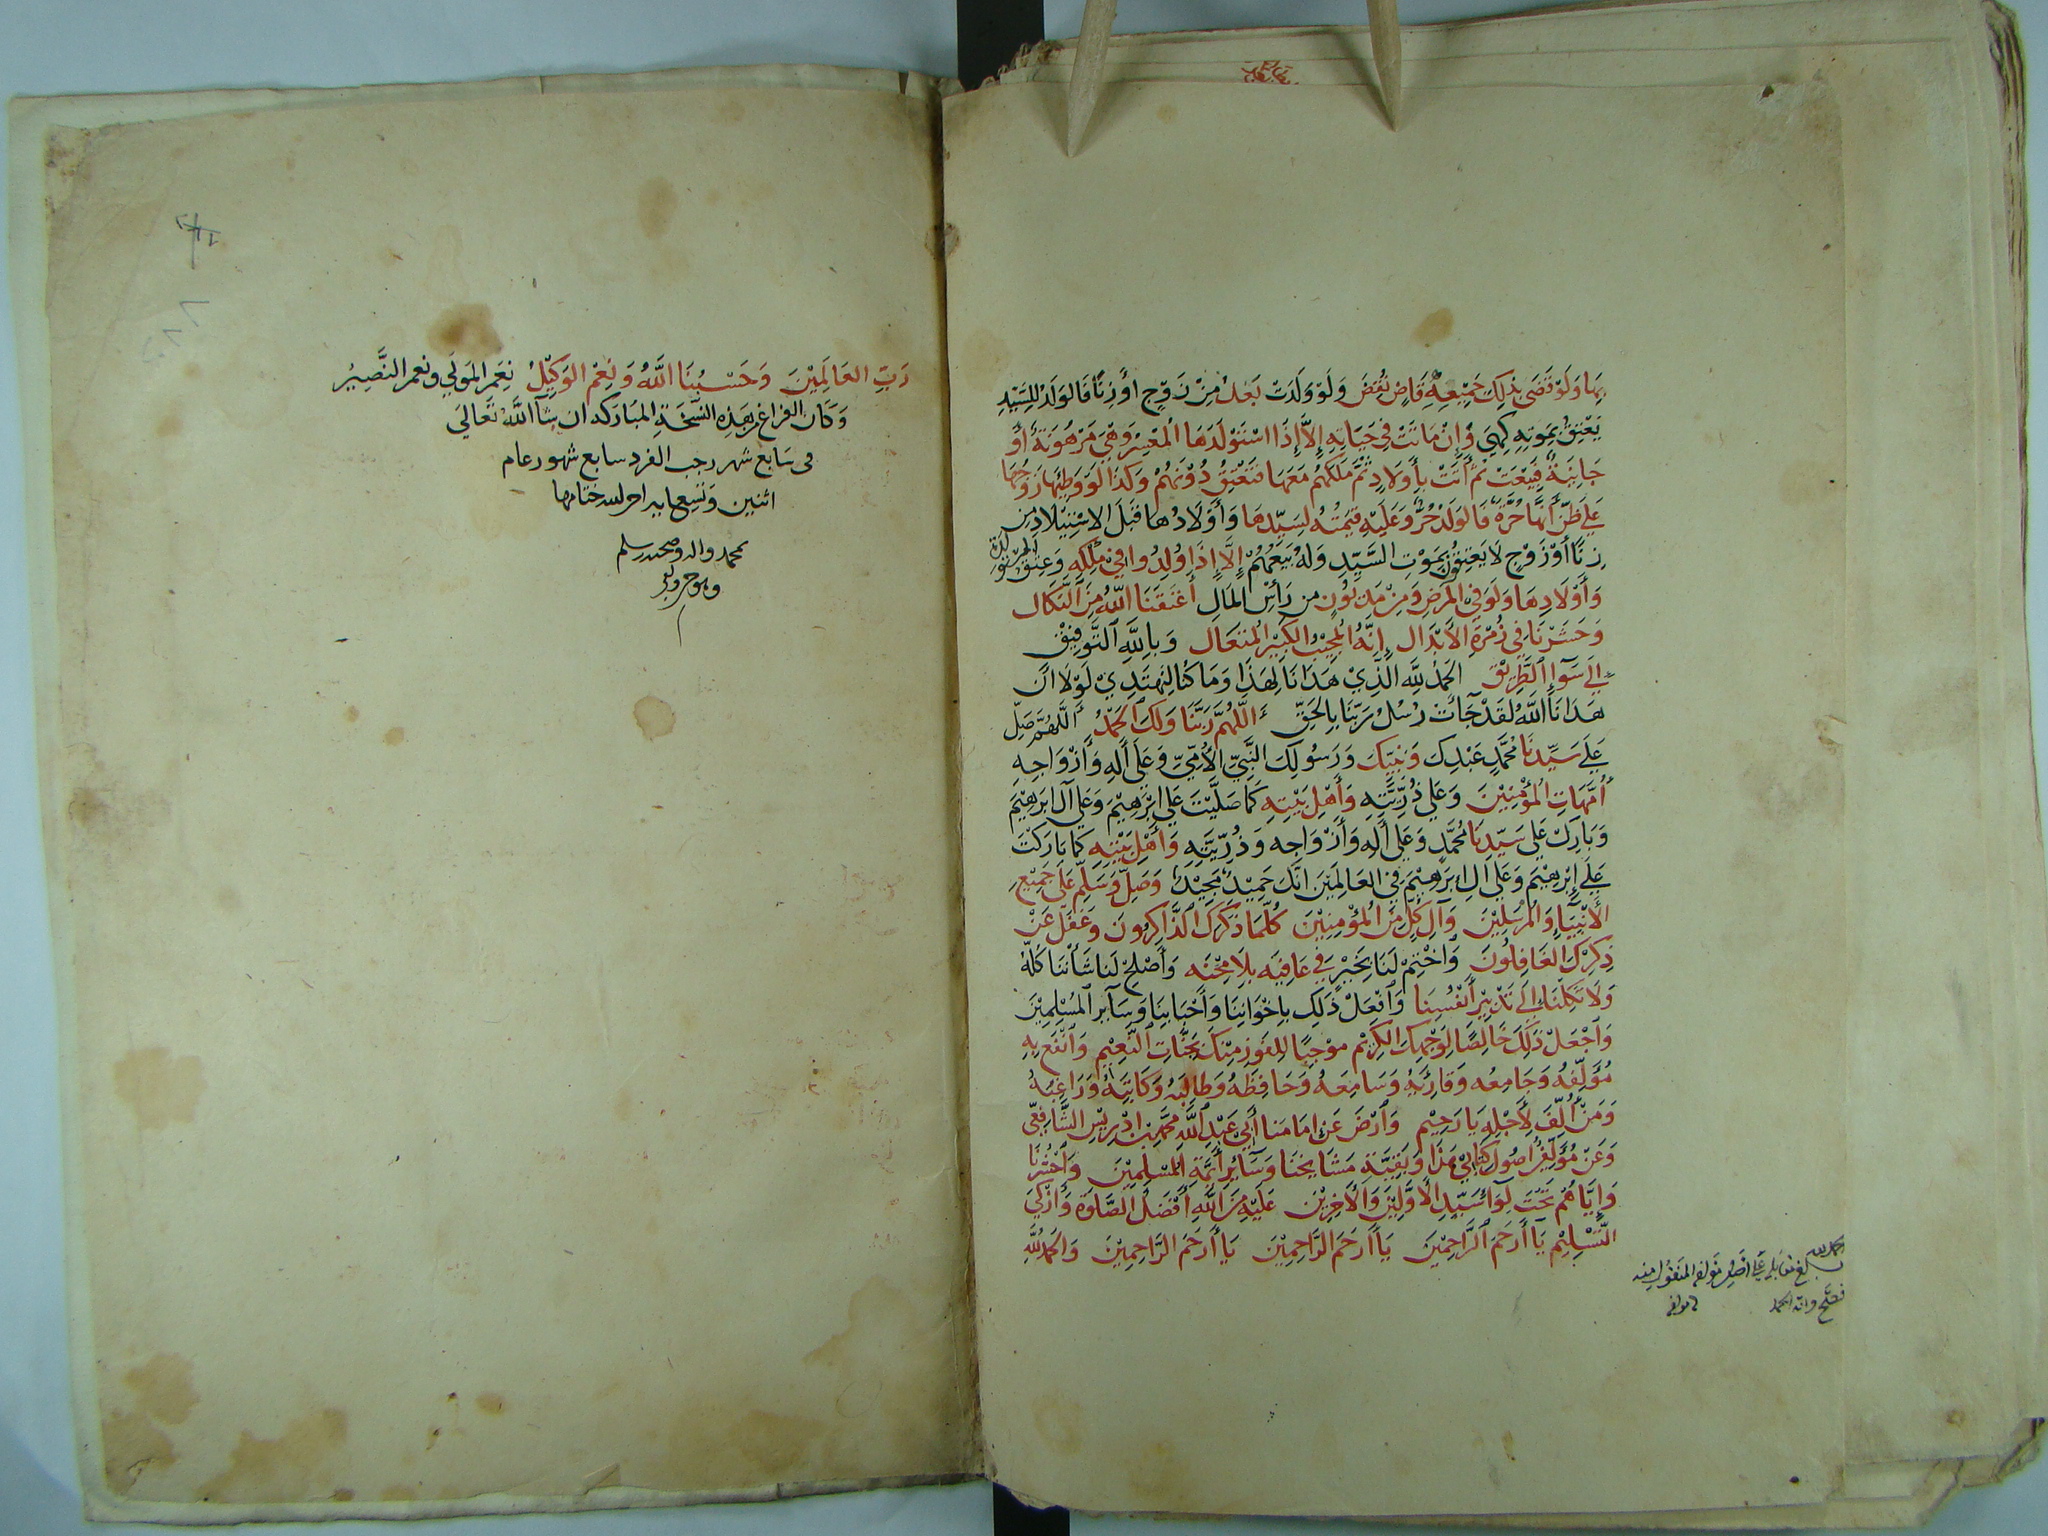 بها ولو قضى بذلك جميعه قاض نقض ولو ولدت بعد من زوج أو زنا فالولد للسيد
يعتق بموته كهي وإن ماتت في حياته إلا إذا استولدها المعسر وهي مرهونة أو
جانية فبيعت ثم أتت بأولاد ثم ملكهم معها فتعتق دونهم وكذا لو وطئها زوجها
على ظن أنها حرة فالولد حر وعليه قيمته لسيدها وأولادها قبل الاستيلاد من
زنا أو زوج لا يعتقون بموت السيد وله بيعهم إلا إذا ولدوا في ملكه وعتق المستولدة
وأولادها ولو في المرض ومن مديون من رأس المال أعتقنا الله من النكال
وحشرنا في زمرة الأبدال إنه المجيب الكبير المتعال وبالله التوفيق
إلى سواء الطريق الحمد لله الذي هدانا لهذا وما كنا لنهتدي لولا أن
هدانا الله لقد جاءت رسل ربنا بالحق اللهم ربنا ولك الحمد اللهم صل
على سيدنا محمد عبدك ونبيك ورسولك النبي الأمي وعلى آله وأزواجه
أمهات المؤمنين وعلى ذريته وأهل بيته كما صليت على إبرهيم وعلى آل ابرهيم
وبارك على سيدنا محمد وعلى آله وأزواجه وذريته وأهل بيته كما باركت
على إبرهيم وعلى ال ابرهيم في العالمين انك حميد مجيد وصل وسلم على جميع
الأنبياء والمرسلين وآل كل من المؤمنين كلما ذكرك الذاكرون وغفل عن
ذكرك الغافلون واختم لنا بخير في عافيه بلا محنه وأصلح لنا شأننا كله
ولا تكلنا إلى تدبير أنفسنا وافعل ذلك باخواننا وأحبابنا وسآير المسلمين
واجعل ذلك خالصا لوجهك الكريم موجبا للفوز منك بجنات النعيم وانفع به
مؤلفه وجامعه وقارئه وسامعه وحافظه وطالبه وكاتبه وراغبه
ومن ألف لأجله يا رحيم وارض عن امامنا أبي عبد الله محمد بن ادريس الشافعي
وعن مؤلف أصول كتابي هذا وبقية مشايخنا وسآئر أئمة المسلمين واحشرنا
وإياهم تحت لوآء سيد الأولين والآخرين عليه من الله أفضل الصلوة وأزكى
التسليم يا أرحم الراحمين يا أرحم الراحمين يا أرحم الراحمين والحمد لله
الحمد لله
بلغ مقابله على أصل مؤلفه المنقول منه
فصح ولله الحمد
رب العالمين وحسبنا الله ونعم الوكيل نعم المولي ونعم النصير
وكان الفراغ من هذه النسخة المباركه ان شآ الله تعالي
في سابع شهر رجب الفرد سابع شهور عام
اثنين وتسعمايه احسن الله ختامها
بمحمد واله وصحبه وسلم